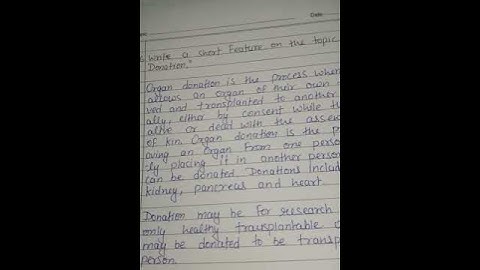 Date
Write a short Feature on the topic
Donation."
Organ donation is the process when
allows an organ of their own
ved and transplanted to another
ally, either by consent while th
alive or dead with the assen
of kin. Organ donation is the p
oving an organ from one perso
ly placing it in another person
can be donated. Donations Includ
kidney, pancreas and heart.
Donation may be for research
only healthy transplantable o
may be donated to be transp
person.